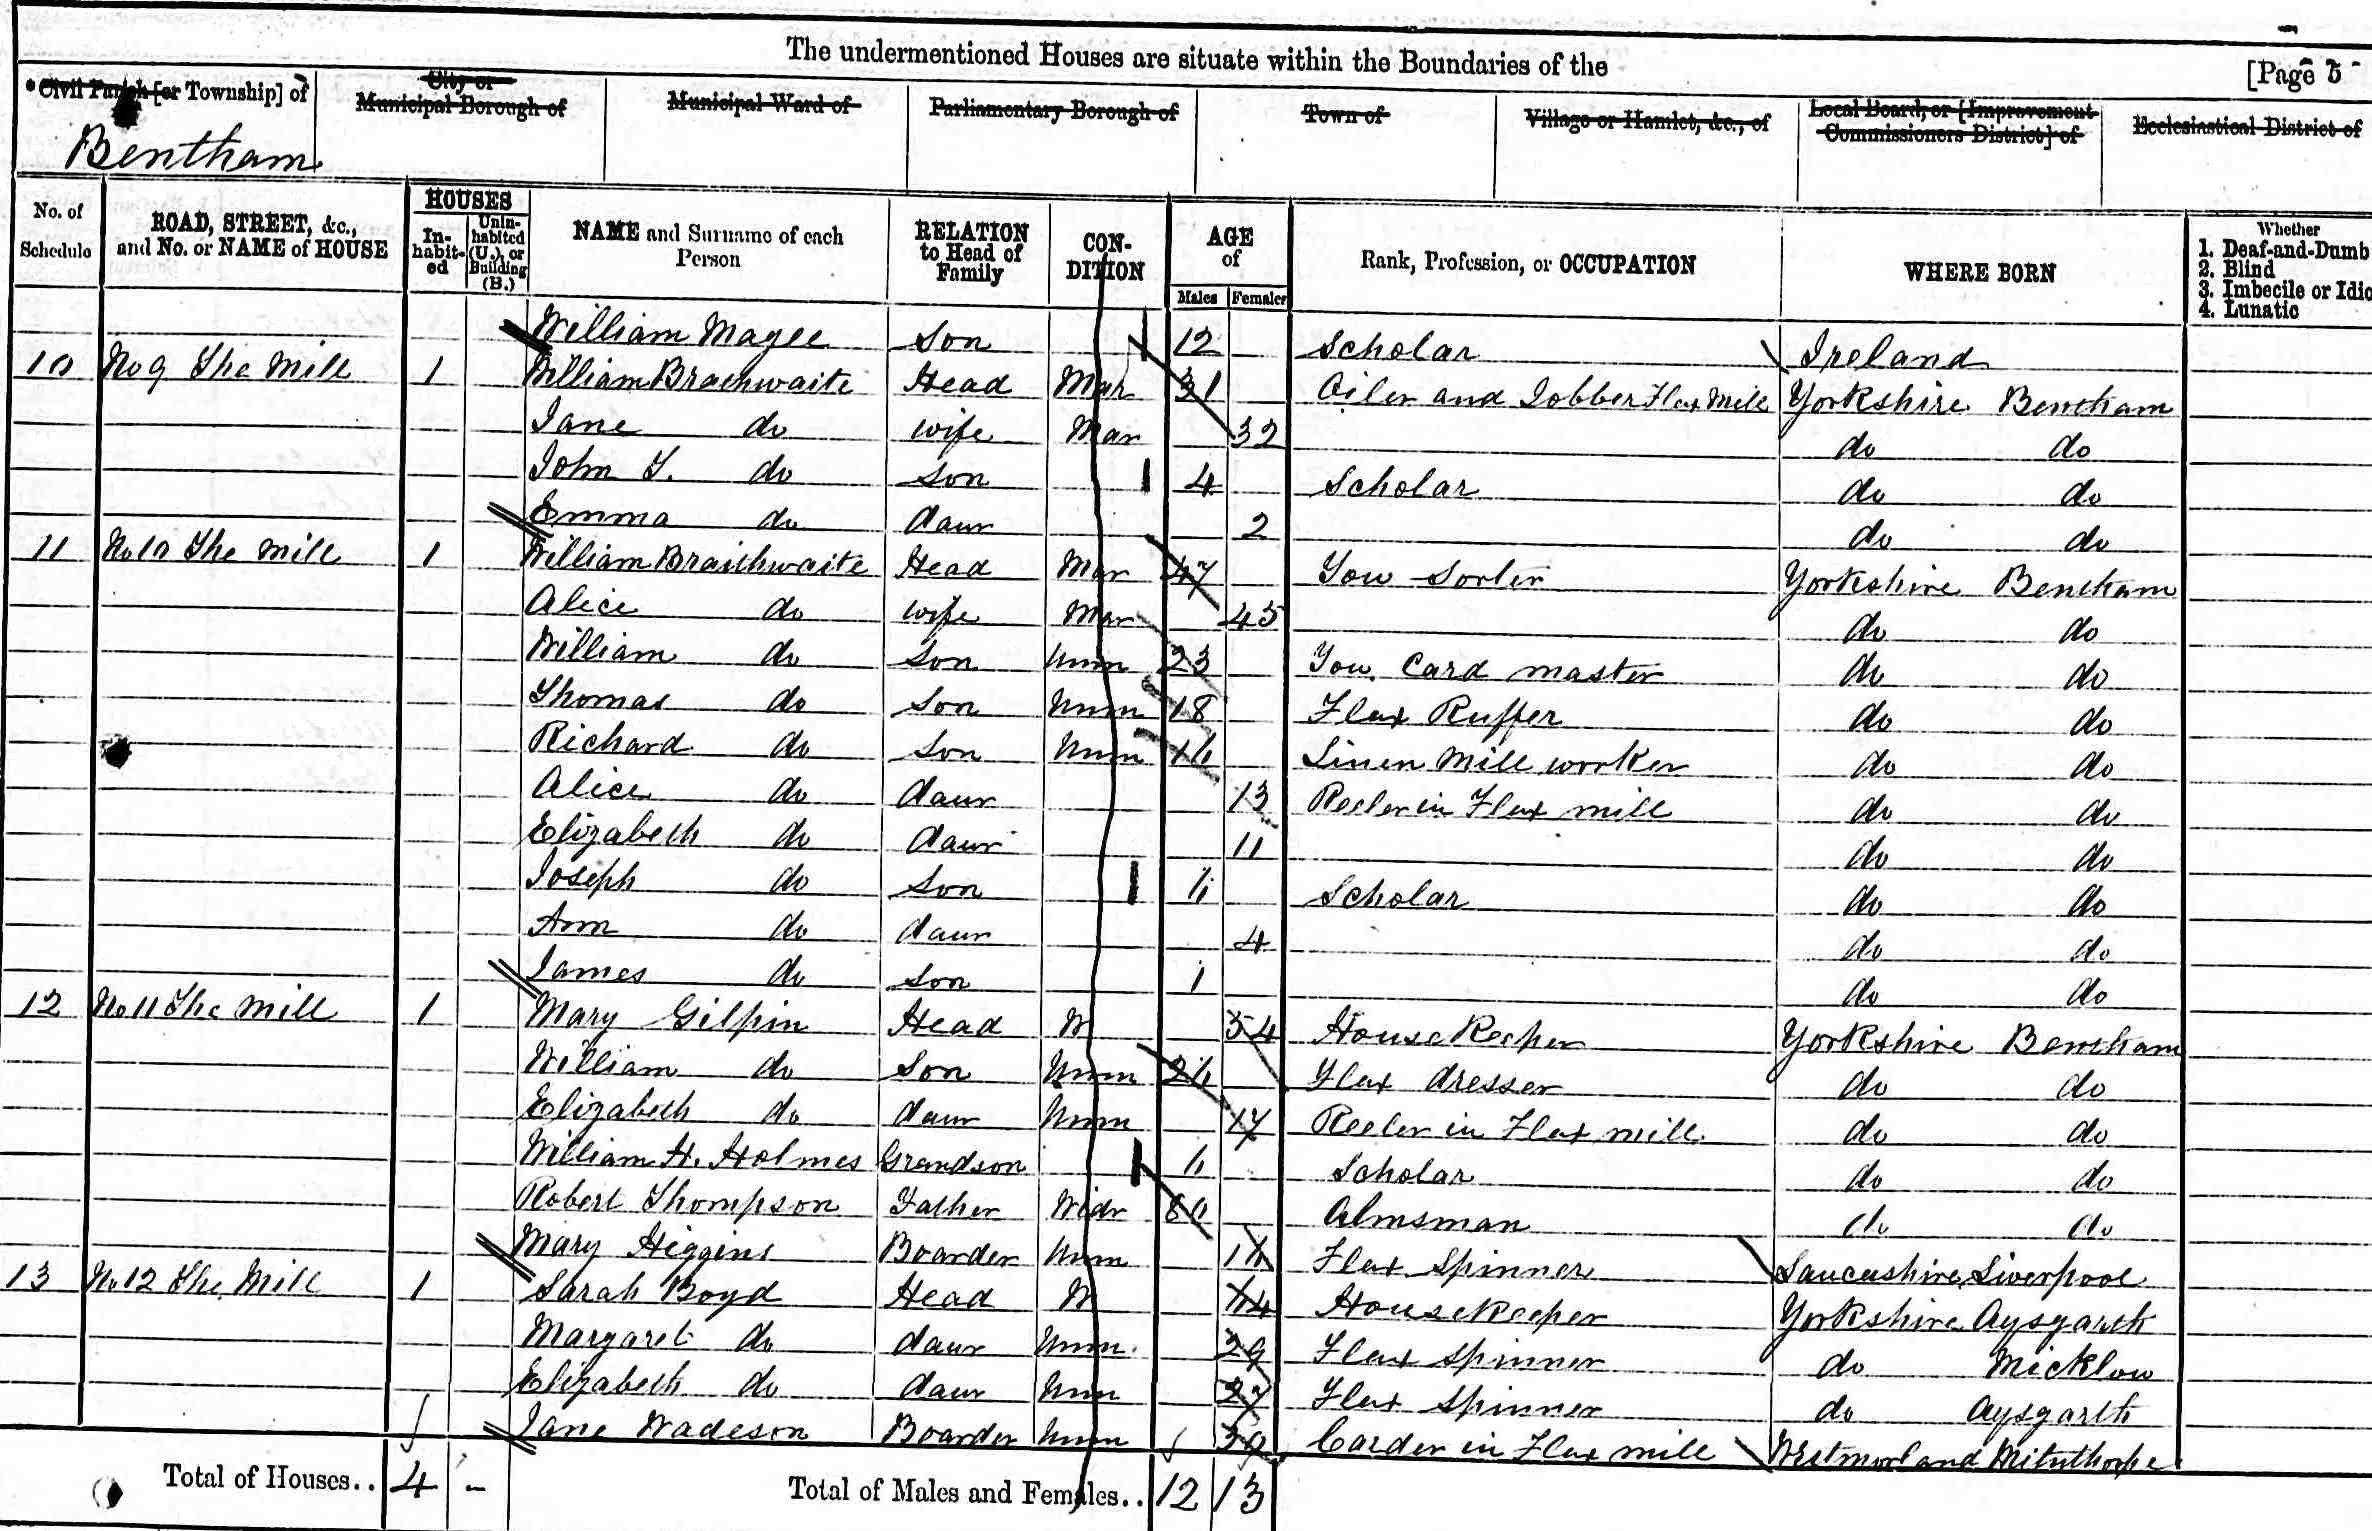 The undermentioned Houses are situate within the Boundaries of the [Page 5
Civil Parish [or Township] of City or Municipal Borough of Municipal Ward of Parliamentary Borough of Town of Village or Hamlet, &c., of Local Board, or [Improvement Commissioners District] of Ecclesiastical District of
Bentham
No. of Schedule ROAD, STREET, &c., and No. or NAME of HOUSE HOUSES Inhabited Uninhabited (U.), or Building (B.) NAME and Surname of each Person RELATION to Head of Family CONDITION AGE of Males Females Rank, Profession, or OCCUPATION WHERE BORN Whether 1. Deaf-and-Dumb 2. Blind 3. Imbecile or Idio 4. Lunatic
William Magee Son 12 Scholar Ireland
10 No 9 The Mill 1 William Braithwaite Head Mar 31 Oiler and Jobber Flax Mill Yorkshire Bentham
Jane do wife Mar 32 do do
John T. do Son 4 Scholar do do
Emma do daur 2 do do
11 No 10 The Mill 1 William Braithwaite Head Mar 47 Tow Sorter Yorkshire Bentham
Alice do wife Mar 45 do do
William do Son Unm 23 Tow Card master do do
Thomas do Son Unm 18 Flax Ruffer do do
Richard do Son Unm 16 Linen Mill worker do do
Alice do daur 13 Reeler in Flax mill do do
Elizabeth do daur 11 do do
Joseph do Son 6 Scholar do do
Ann do daur 4 do do
James do Son 1 do do
12 No 11 The Mill 1 Mary Gilpin Head W 54 House Keeper Yorkshire Bentham
William do Son Unm 26 Flax dresser do do
Elizabeth do daur Unm 17 Reeler in Flax mill do do
William H. Holmes Grandson 6 Scholar do do
Robert Thompson Father Widr 80 Almsman do do
Mary Higgins Boarder Unm 16 Flax Spinner Lancashire Liverpool
13 No 12 The Mill 1 Sarah Boyd Head W 64 Housekeeper Yorkshire Aysgarth
Margaret do daur Unm 29 Flax Spinner do Micklow
Elizabeth do daur Unm 27 Flax Spinner do Aysgarth
Jane Wadeson Boarder Unm 30 Carder in Flax mill Westmorland
Total of Houses.. 4 - Total of Males and Females.. 12 13